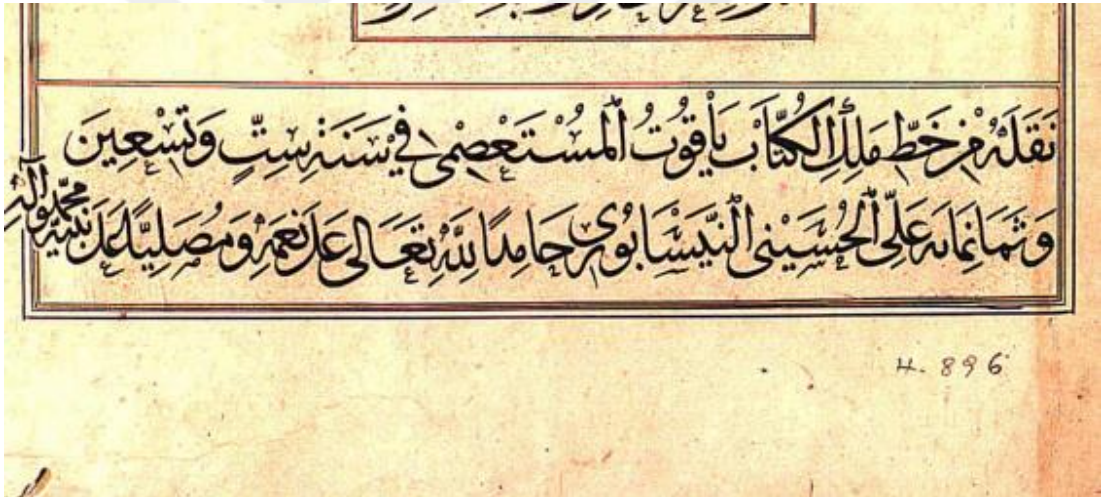 نَقَلَهُ مِنْ خَطِّ مَلِكِ الْكُتَّابْ يَاْقُوْتُ الْمُسْتَعْصِمِي فِيْ سَنَةِ سِتٍّ وَتِسْعِينَ
وَثَمَانِمَايه عَلِيّ الْحُسَيْنِي النَّيْسَابُورِي حَامِدًا لِلَّهِ تَعَالى عَلى نِعَمِهِ وَمُصَلِيًّا عَلى نَبِيِّهِ مُحَمَّد وَآلِهِ
H. 896